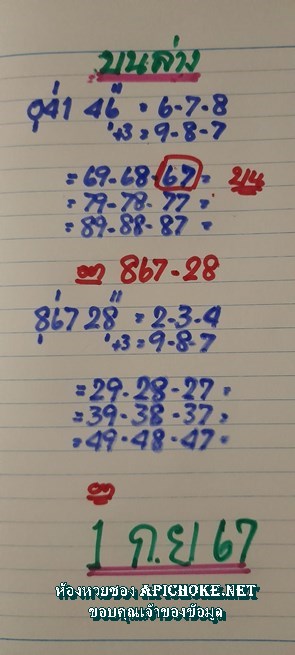 บนล่าง
041 46" = 6-7-8
+3 = 9-8-7
= 69-68-67 = บน
= 79-78-77 =
= 89-88-87 =
867-28
867 28" = 2-3-4
+3 = 9-8-7
= 29-28-27 =
= 39-38-37 =
= 49-48-47 =
1 ก.ย 67
ห้องหวยซอง APICHOKE.NET
ขอบคุณเจ้าของข้อมูล